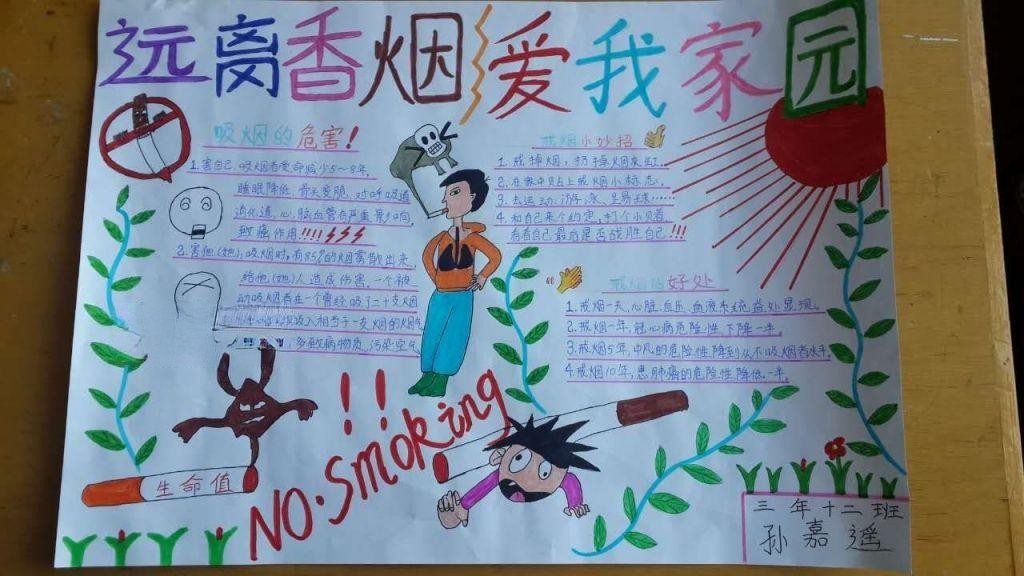 远离香烟 爱我家园
吸烟的危害！
1.害自己：吸烟者寿命减少5～8年，
睡眠降低，骨头变脆，对呼吸道
消化道，心、脑血管有严重影响，
致癌作用!!!!
2.害他(她)：吸烟时，有85%的烟雾散出来，
给他(她)人造成伤害，一个被
动吸烟者在一个曾经吸了二十支烟
吸入相当于一支烟的烟气
多致病物质，污染空气
戒烟小妙招
1.戒掉烟，扔掉烟
2.在家中贴上戒烟小标志，
3.去运动：游泳、
4.和自己来个约定，打个小
看看自己最后是否战胜自己!!!
戒烟的好处
1.戒烟一天，心脏、血压、血液系统益处显现。
2.戒烟一年，冠心病危险性下降一半。
3.戒烟5年，中风的危险性降到从不吸烟者水平。
4.戒烟10年，患肺癌的危险性降低一半。
!!
NO.Smoking
生命值
三年十二班
孙嘉遥